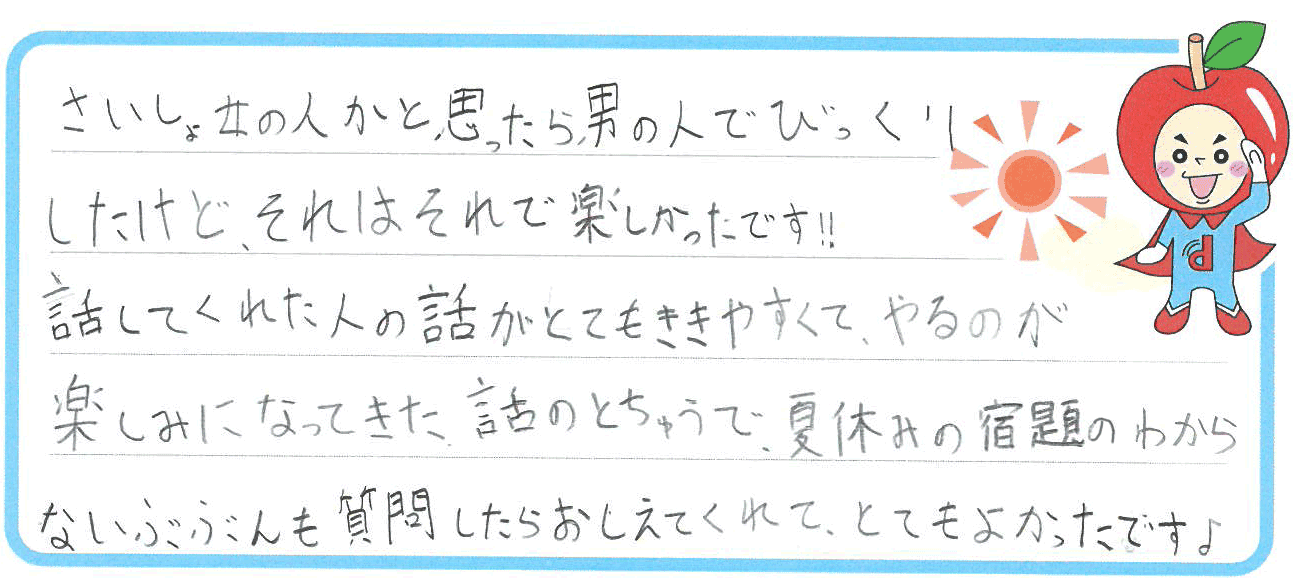 さいしょ女の人かと思ったら男の人でびっくり
したけど、それはそれで楽しかったです!!
話してくれた人の話がとてもききやすくて、やるのが
楽しみになってきた。話のとちゅうで、夏休みの宿題のわから
ないぶぶんも質問したらおしえてくれて、とてもよかったです♪